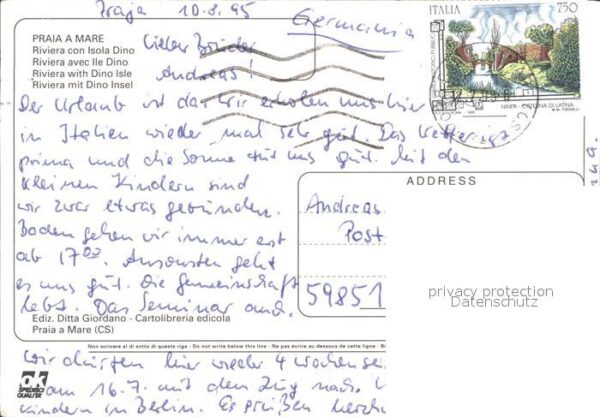 Praja 10.8.95
Germania
ITALIA 750
NINFA - CISTERNA DI LATINA
PRAIA A MARE
Riviera con Isola Dino
Riviera avec Ile Dino
Riviera with Dino Isle
Riviera mit Dino Insel
Lieber Bruder
Andreas!
Der Urlaub ist da. Wir erholen uns hier
in Italien wieder mal sehr gut. Das Wetter ist
prima und die Sonne tut uns gut. Mit den
kleinen Kindern sind
wir zwar etwas gebunden.
Baden gehen wir immer erst
ab 17.00. Ansonsten geht
es uns gut. Die Gemeinschaft
lebt. Das Seminar auch.
ADDRESS
Andreas
Post
59851
privacy protection
Datenschutz
Ediz. Ditta Giordano - Cartolibreria edicola
Praia a Mare (CS)
Non scrivere al di sotto di questa riga - Do not write below this line - Ne pas écrire au dessous de cette ligne -
Wir dürfen hier wieder 4 Wochen
am 16.7. mit dem Zug nach
Kindern in Berlin. Es grüßen
ok